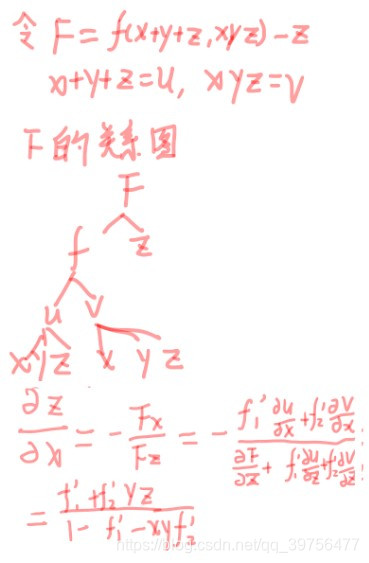 令 F = f(x+y+z, xyz) - z
x+y+z=u, xyz=v
F的关系图
F
f z
u v
x y z x y z
∂z/∂x = - Fx/Fz = - (f₁' ∂u/∂x + f₂' ∂v/∂x)/(∂F/∂z + f₁' ∂u/∂z + f₂' ∂v/∂z)
= (f₁' + f₂' yz)/(1 - f₁' - xyf₂')
https://blog.csdn.net/qq_39756477